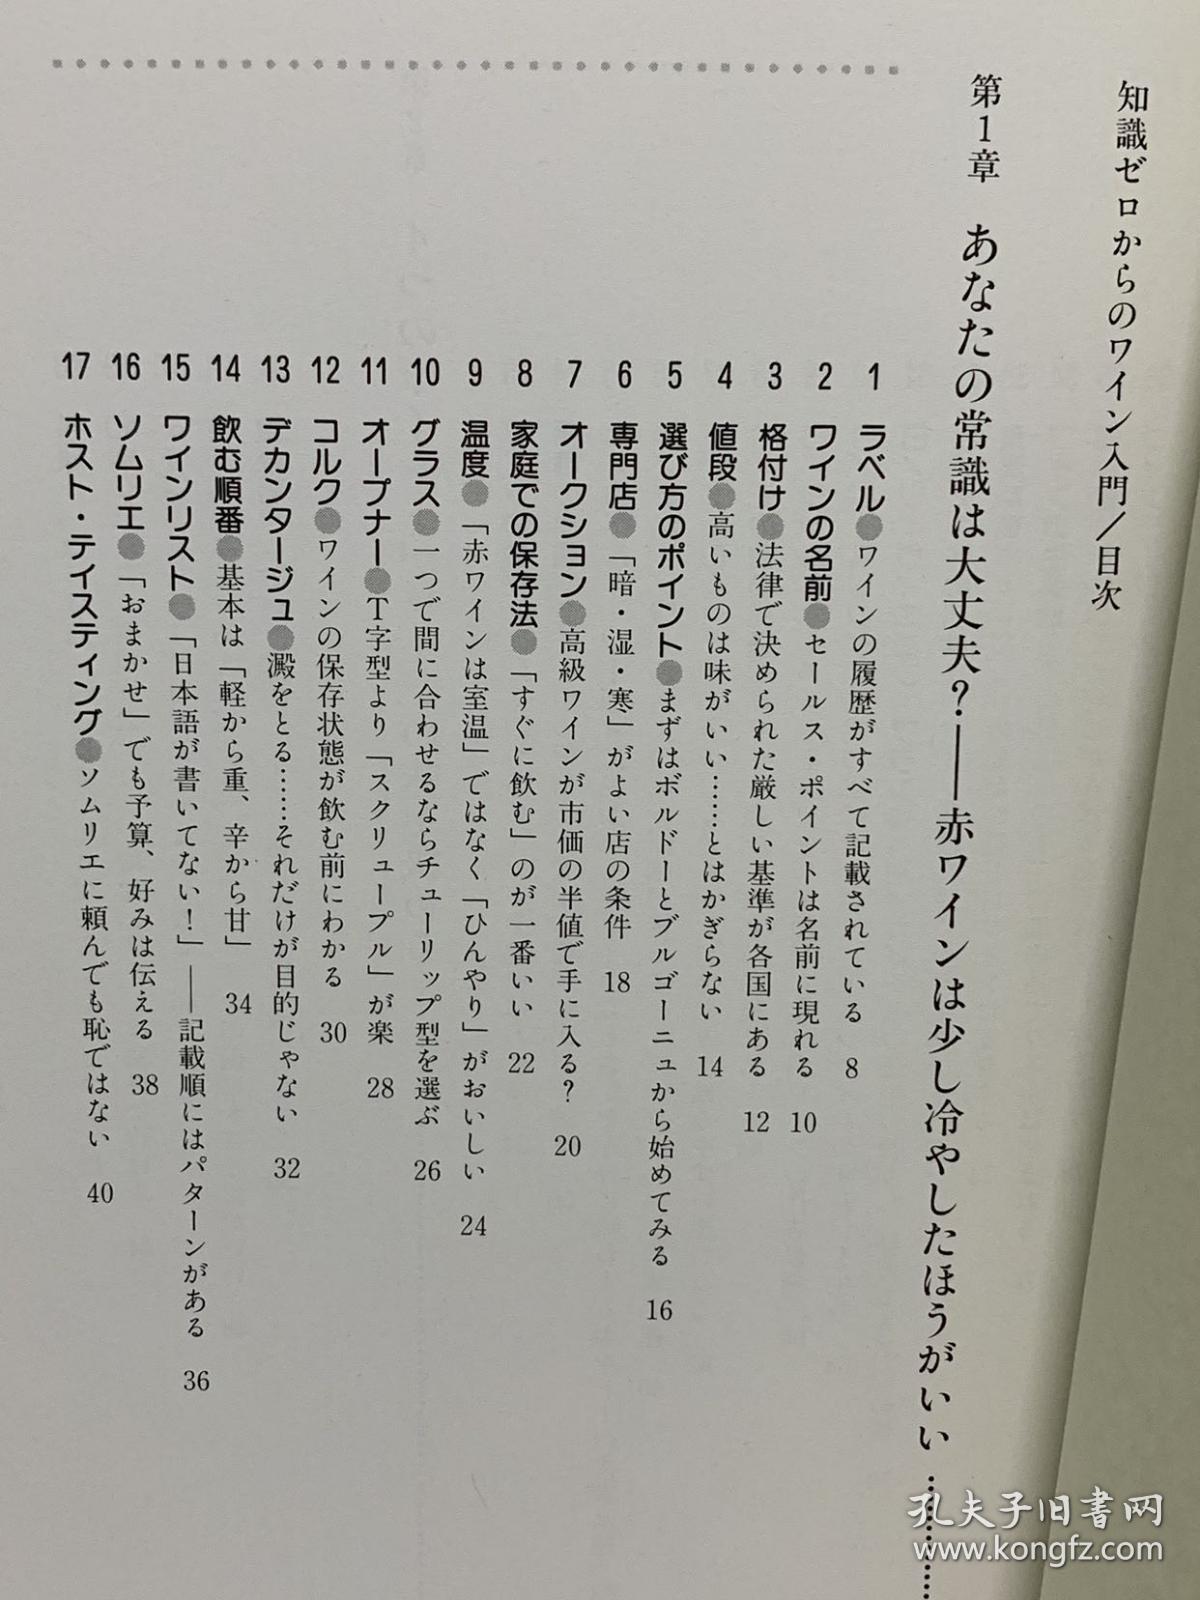 知識ゼロからのワイン入門/目次
第1章 あなたの常識は大丈夫?——赤ワインは少し冷やしたほうがいい …………
1 ラベル●ワインの履歴がすべて記載されている 8
2 ワインの名前●セールス・ポイントは名前に現れる 10
3 格付け●法律で決められた厳しい基準が各国にある 12
4 値段●高いものは味がいい……とはかぎらない 14
5 選び方のポイント●まずはボルドーとブルゴーニュから始めてみる 16
6 専門店●「暗・湿・寒」がよい店の条件 18
7 オークション●高級ワインが市価の半値で手に入る? 20
8 家庭での保存法●「すぐに飲む」のが一番いい 22
9 温度●「赤ワインは室温」ではなく「ひんやり」がおいしい 24
10 グラス●一つで間に合わせるならチューリップ型を選ぶ 26
11 オープナー●T字型より「スクリュープル」が楽 28
12 コルク●ワインの保存状態が飲む前にわかる 30
13 デカンタージュ●澱をとる……それだけが目的じゃない 32
14 飲む順番●基本は「軽から重、辛から甘」 34
15 ワインリスト●「日本語が書いてない!」——記載順にはパターンがある 36
16 ソムリエ●「おまかせ」でも予算、好みは伝える 38
17 ホスト・テイスティング●ソムリエに頼んでも恥ではない 40
孔夫子旧书网
www.kongfz.com